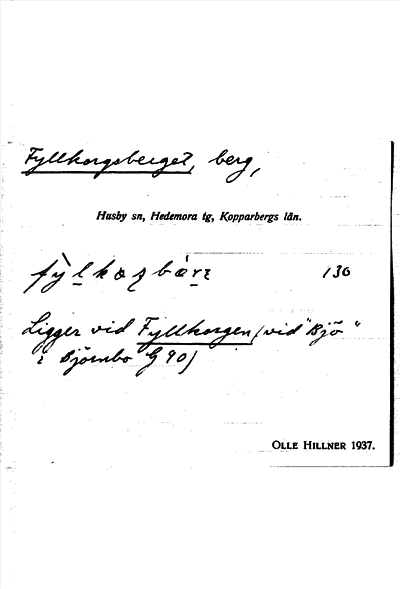 Fyllkorgsberget, berg,
Husby sn, Hedemora tg, Kopparbergs län.
130
Ligger vid Fyllkorgen (vid "Bjö"
i Björnbo G 90)
OLLE HILLNER 1937.